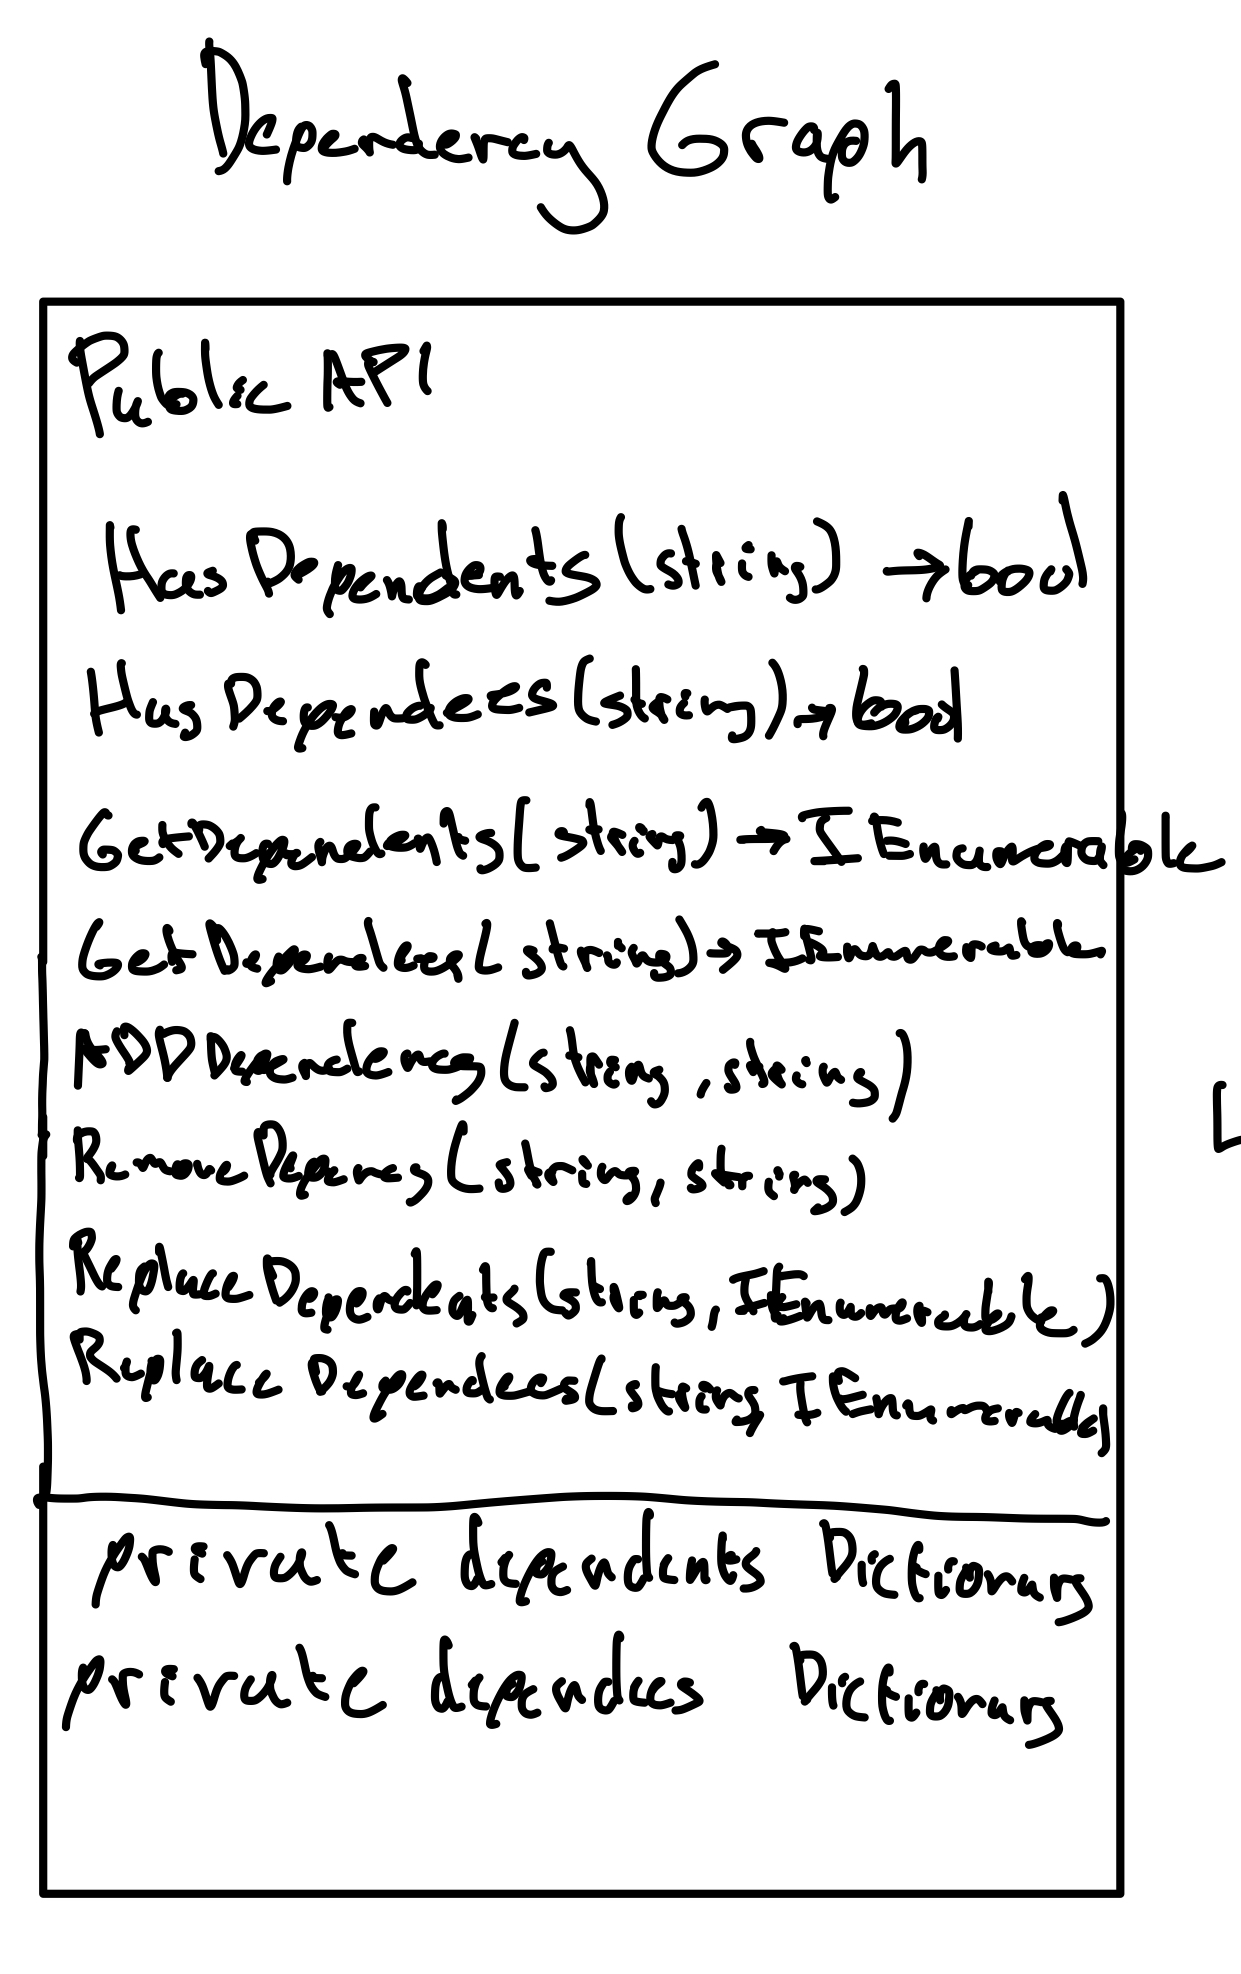 Dependency Graph
Public API
HasDependents(string) → bool
HasDependees(string) → bool
GetDependents(string) → IEnumerable
GetDependees(string) → IEnumerable
ADDDependency(string, string)
RemoveDepency(string, string)
ReplaceDependents(string, IEnumerable)
Replace Dependees(string, IEnumerable)
private dependents Dictionary
private dependees Dictionary